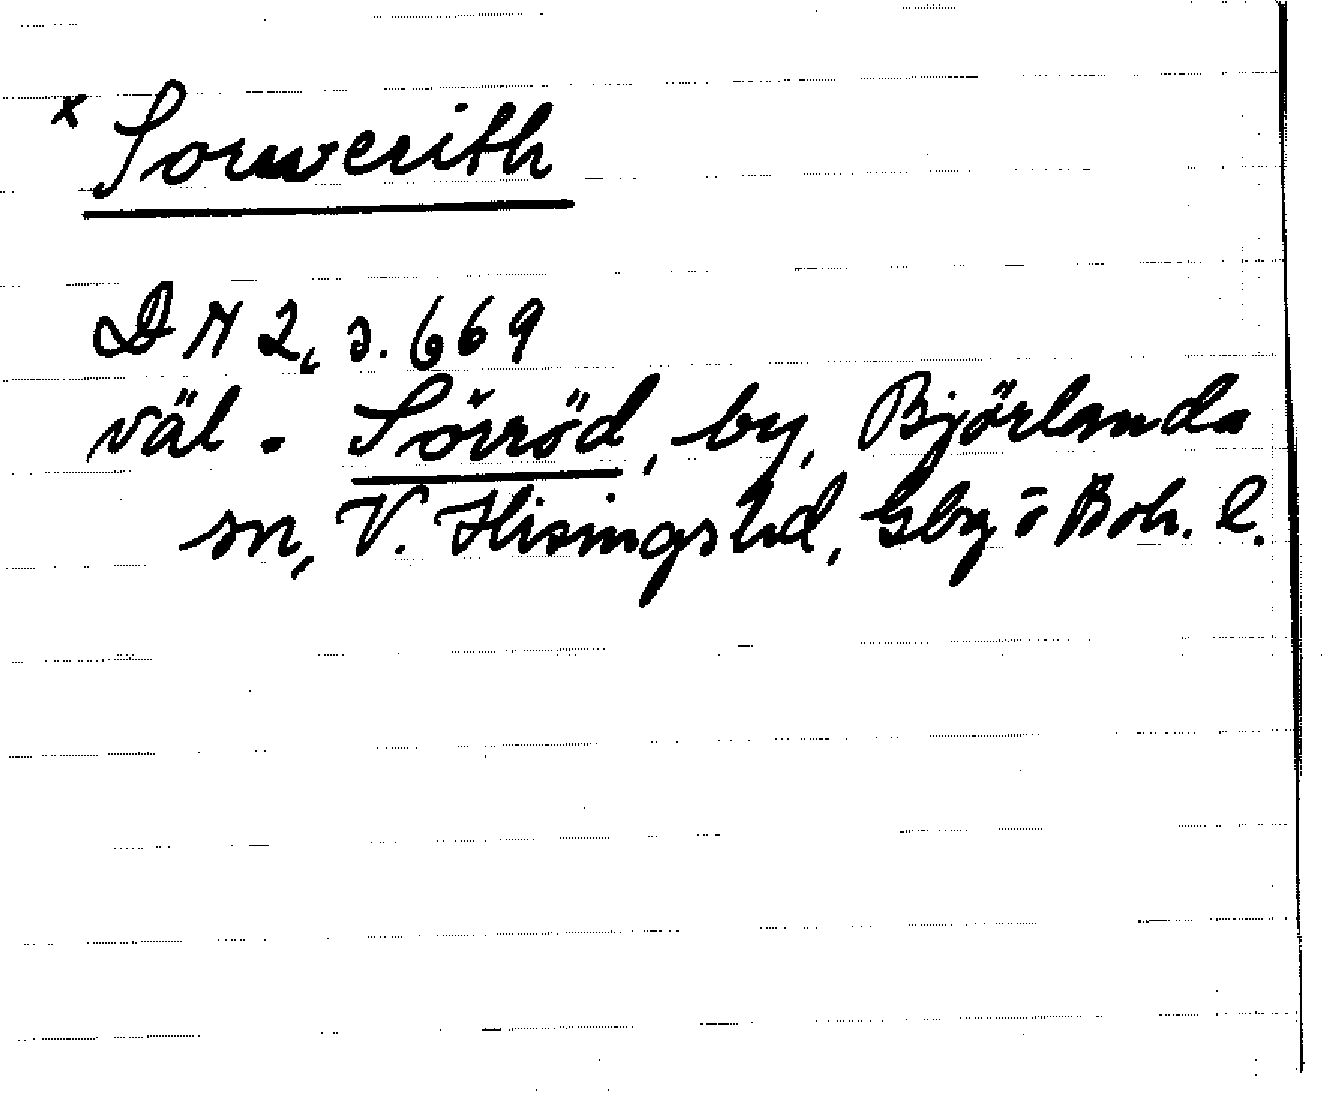 x Sorwerith
DN 2, s. 669
väl. Sörröd, by, Björlanda
sn, V. Hisings hd, Gbg o Boh. l.